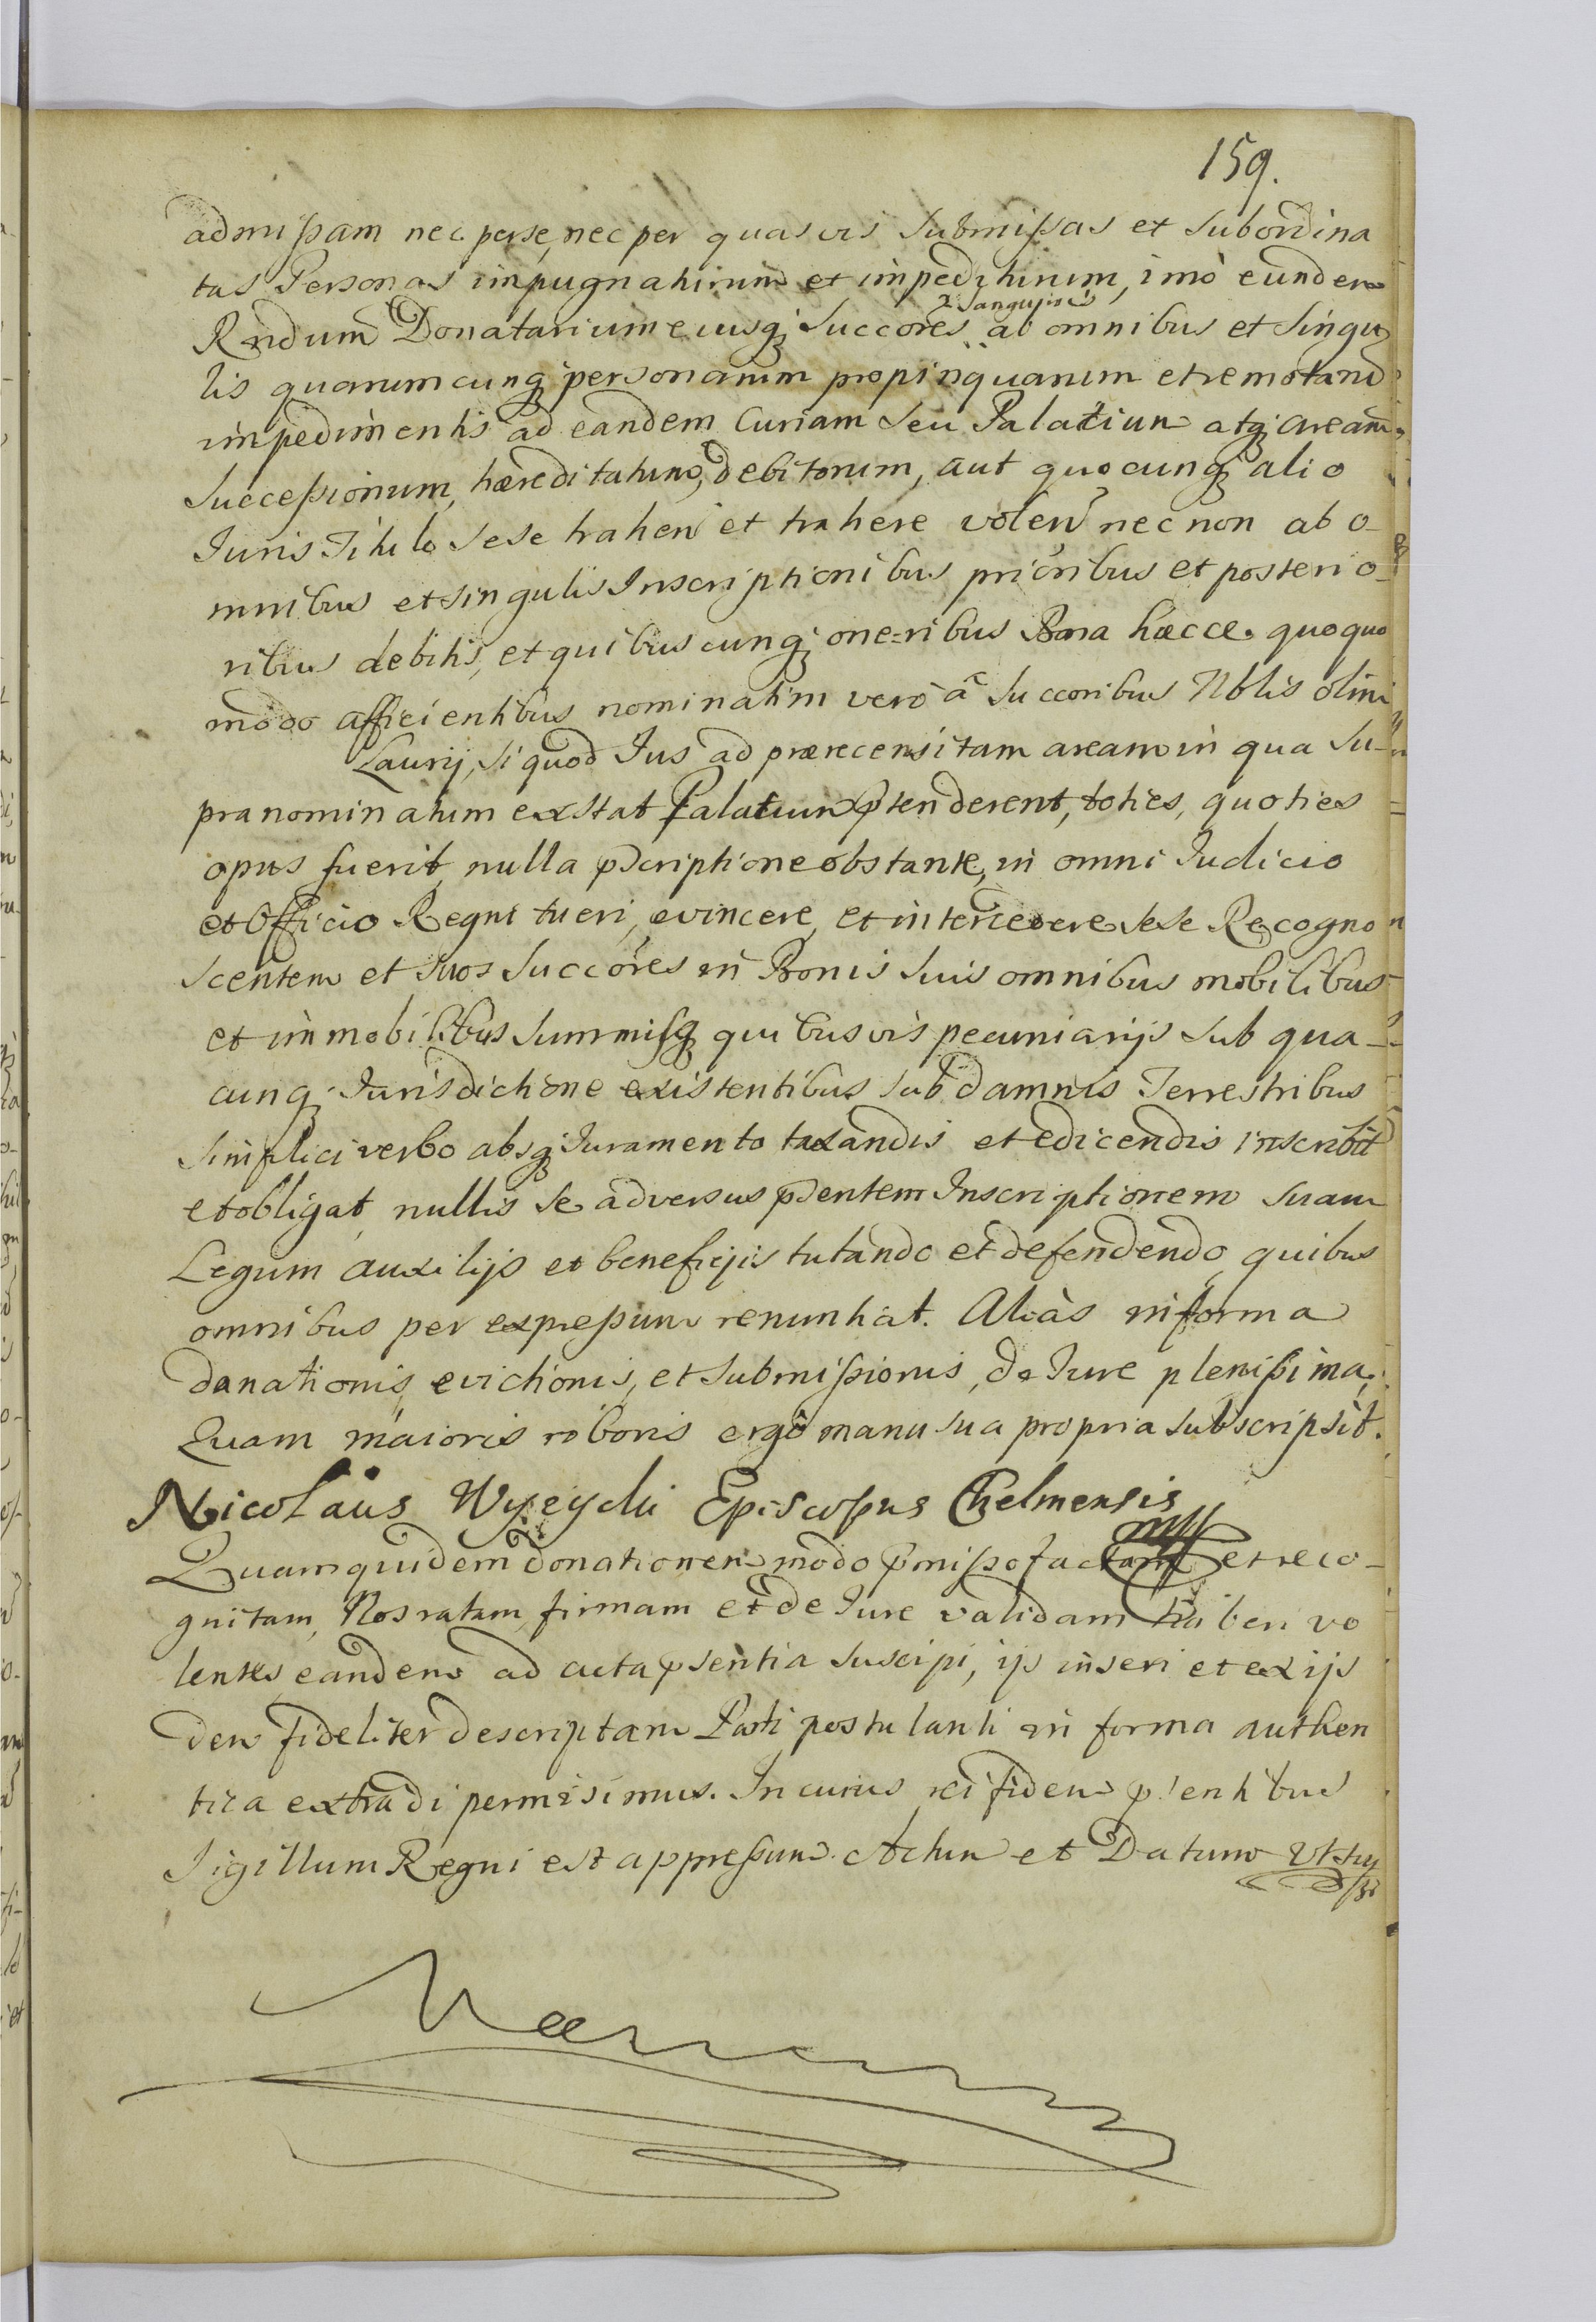 159.
admissam nec per se, nec per quasvis submissas et subordina
tas Personas impugnaturum et impediturum, imò eundem
Rndum Donatarium eiusq; Succores ab omnibus et singu
lis quarumcunq; personarum propinquarum et remotarum
impedimentis ad eandem Curiam seu Palatium atq; aream
Successionum, hæreditatum, debitorum, aut quocunq; alio
Juris Titulo sese trahen et trahere volen nec non ab o-
mnibus et singulis Inscriptionibus prioribus et posterio-
ribus debitis, et quibuscunq; one=ribus Bona hæcce quoquo
modo afficientibus nominatim verò à Succoribus Nblis olim
Laurij, si quod Jus ad prærecensitam aream in qua Su-
pranominatum exstat Palatium ptenderent, toties, quoties
opus fuerit, nulla pscriptione obstante, in omni Judicio
et Officio Regni tueri, evincere, et intercedere sese Recogno
scentem et suos Succores in Bonis suis omnibus mobilibus
et immobilibus summisq; quibusvis pecuniarijs sub qua-
cunq; Jurisdictione existentibus sub damnis Terrestribus
simplici verbo absq; Juramento taxandis et edicendis inscribit
et obligat, nullis se adversus psentem Inscriptionem suam
Legum auxilijs et beneficijs tutando et defendendo, quibus
omnibus per expressum renuntiat. Aliàs in forma
donationis, evictionis, et submissionis, de Jure plenissima;
Quam maioris roboris ergò manu sua propria subscripsit.
Nicolaus Wyzycki Episcopus Chelmensis
Quam quidem donationem modo pmisso factam et reco-
gnitam, Nos ratam, firmam et de Jure validam haberi vo
lentes eandem ad acta psentia suscipi, ijs inseri et ex ijs
dem fideliter descriptam Parti postulanti in forma authen
tica extradi permisimus. In cuius rei fidem psentibus
Sigillum Regni est appressum. Actum et Datum Ut su